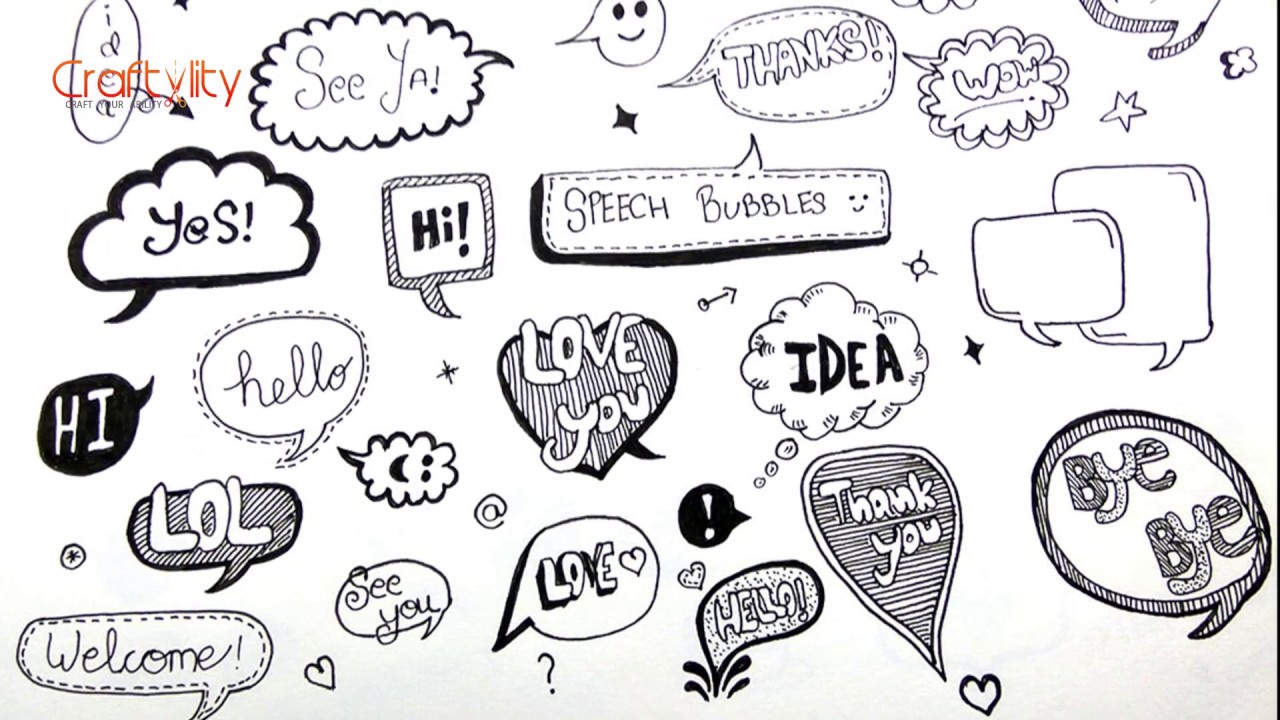 Craftylity
CRAFT YOUR ABILITY
See Ya!
THANKS!
WOW
Yes!
Hi!
SPEECH BUBBLES
hello
LOVE
YOU
IDEA
HI
Bye
Bye
LOL
@
!
Thank
you
See
you
LOVE
HELLO!
Welcome!
?